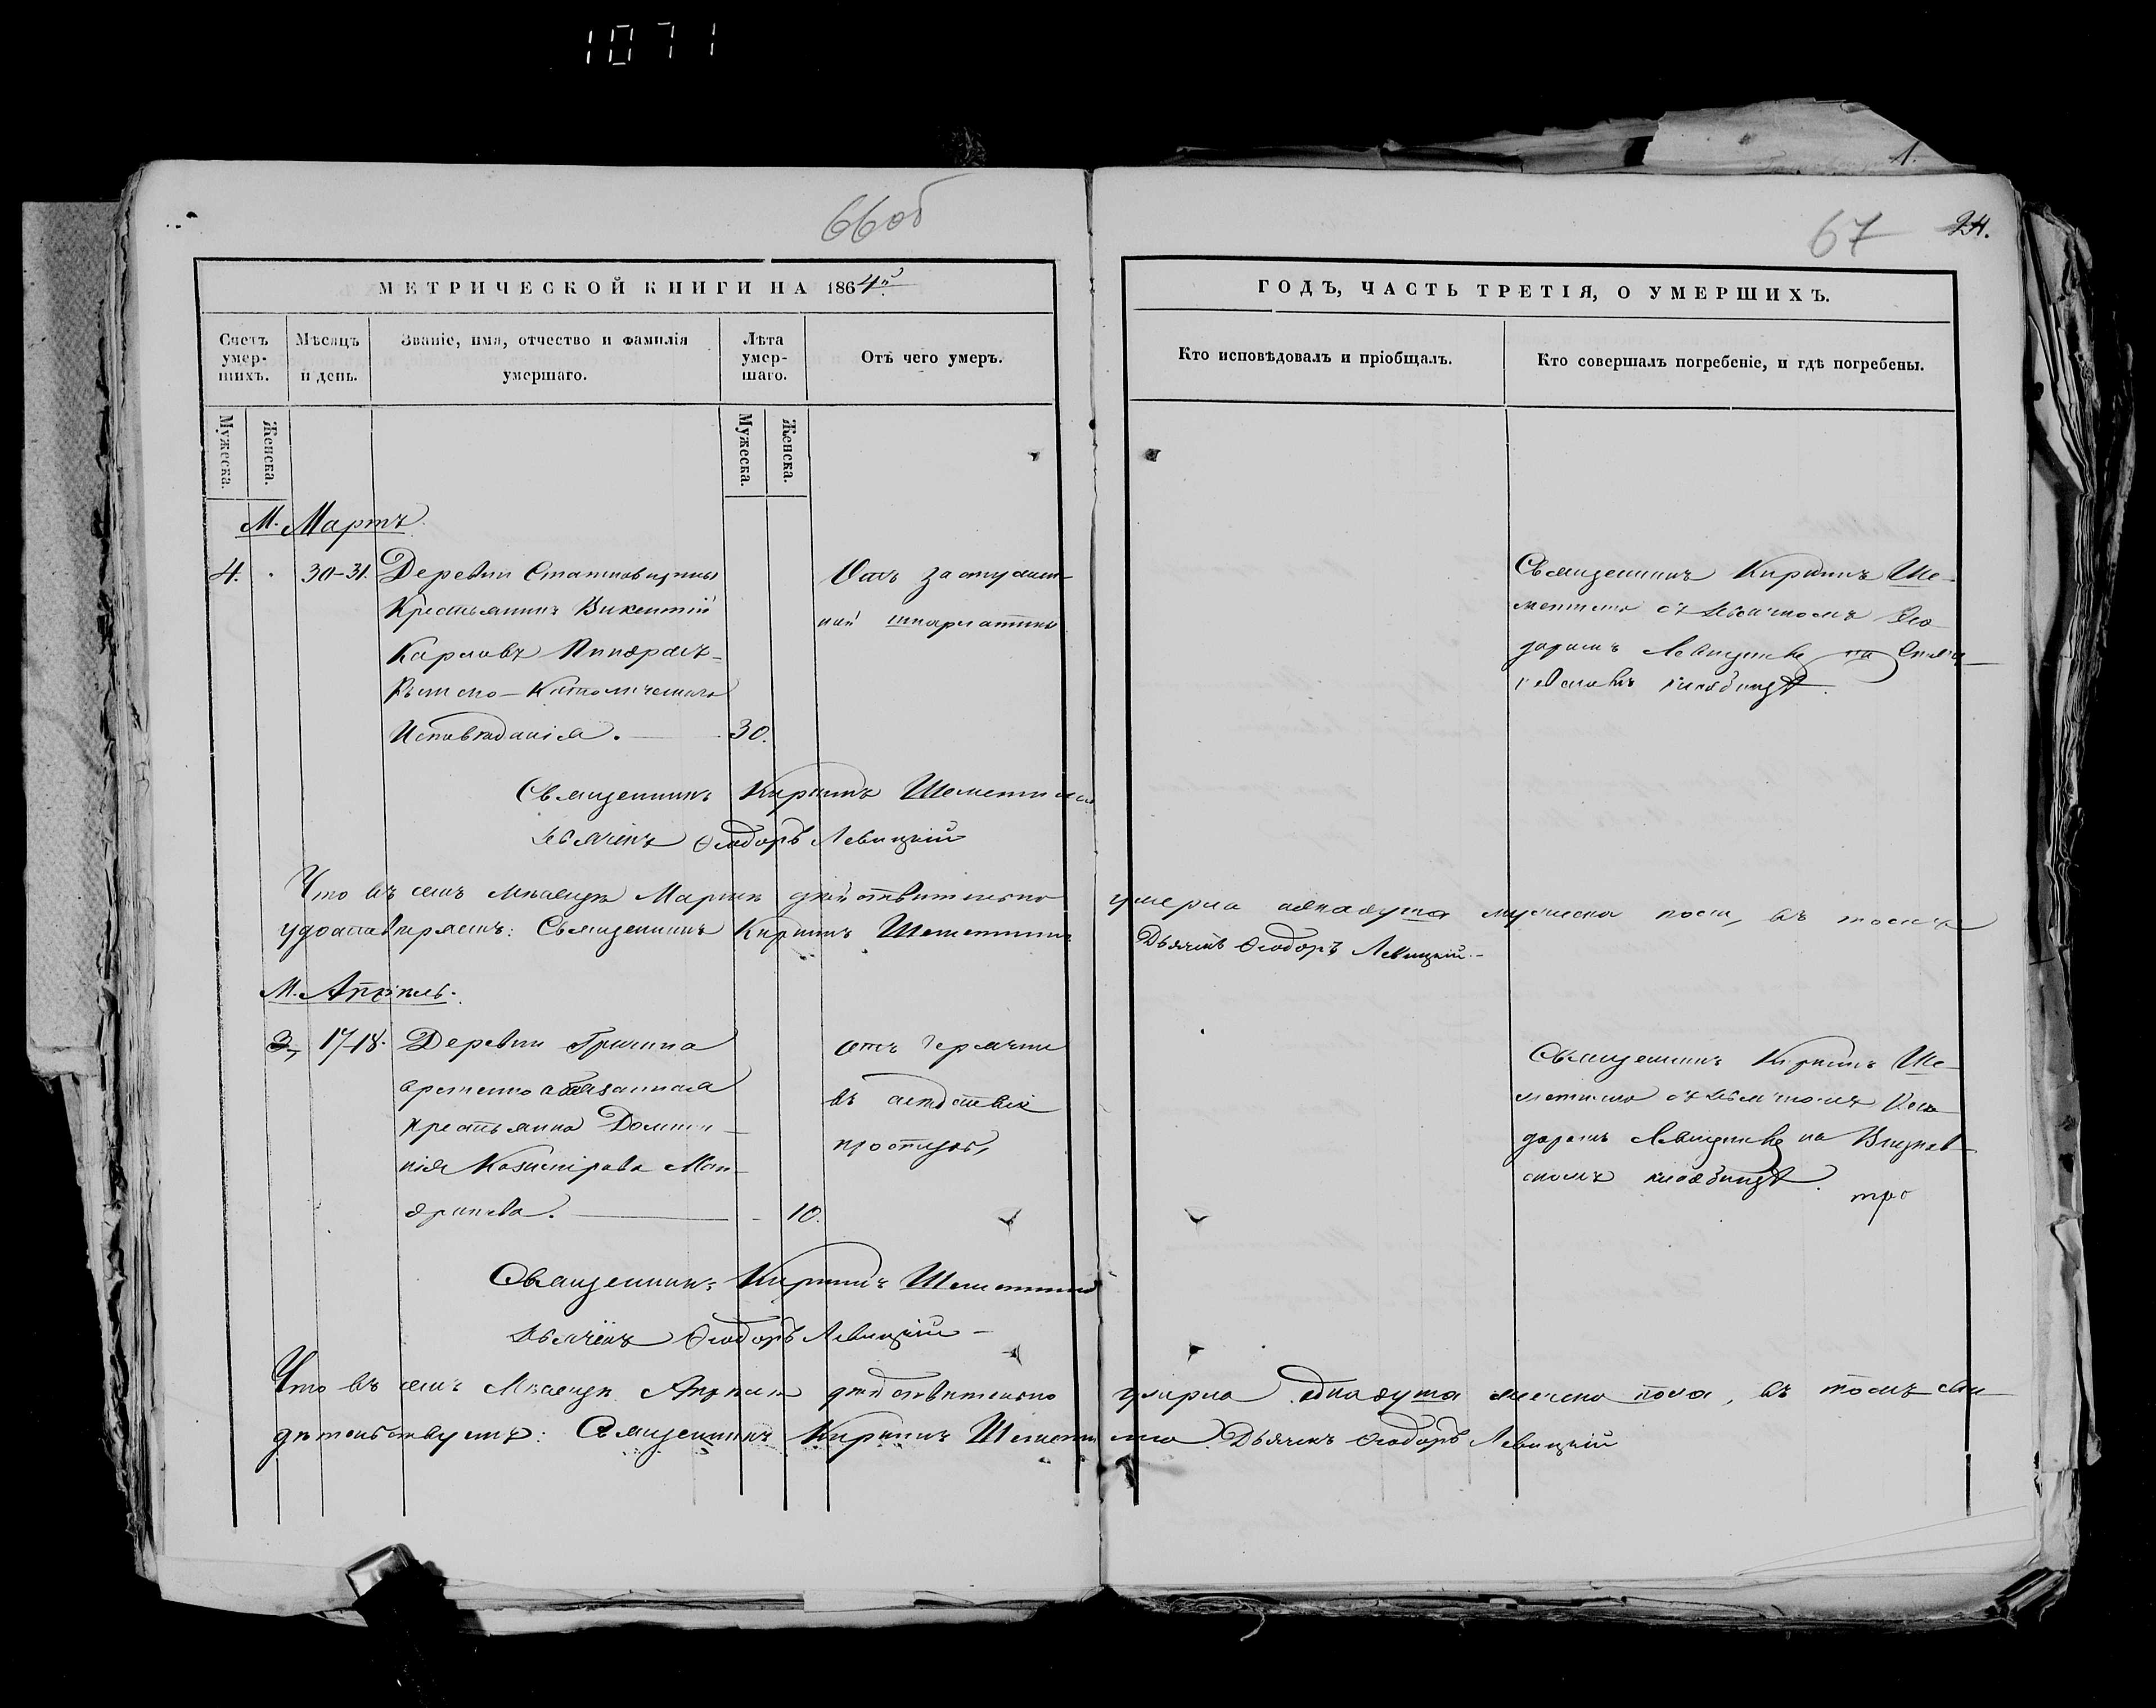 1071
1.
66об
67 24.
МЕТРИЧЕСКОЙ КНИГИ НА 1864й
ГОДЪ, ЧАСТЬ ТРЕТІЯ, О УМЕРШИХЪ.
Счетъ умер-шихъ.
Мѣсяцъ и день.
Званіе, имя, отчество и фамилія умершаго.
Лѣта умер-шаго.
Отъ чего умеръ.
Кто исповѣдовалъ и пріобщалъ.
Кто совершалъ погребеніе, и гдѣ погребены.
Мужеска.
Женска.
Мужеска.
Женска.
М. Мартъ.
4. 30-31. Деревни
Крестьянинъ Викентій
Карловъ
Римско-Католическаго
Исповѣданія. 30.
Отъ
ной шкарлатины
Священникъ Кириллъ Ше-
метилло съ дьячкомъ Ѳео-
доромъ Левицкимъ на
кладбищѣ.
Священникъ Кириллъ Шеметилло
Дьячекъ Ѳеодоръ Левицкій
Что въ семъ мѣсяцѣ Мартѣ дѣйствительно умерла одна душа мужеска пола, въ томъ
удостовѣряемъ: Священникъ Кириллъ Шеметилло Дьячекъ Ѳеодоръ Левицкій.
М. Апрѣль.
3, 17-18. Деревни
временно обязанная
крестьянка Домини-
кія Казимірова
10.
отъ горячки
въ слѣдствіе
простуды,
Священникъ Кириллъ Ше-
метилло съ дьячкомъ Ѳео-
доромъ Левицкимъ на
скомъ кладбищѣ.
Священникъ Кириллъ Шеметилло
Дьячекъ Ѳеодоръ Левицкій
Что въ семъ Мѣсяцѣ Апрѣлѣ дѣйствительно умерла одна душа женска пола, въ томъ сви-
дѣтельствуемъ: Священникъ Кириллъ Шеметилло. Дьячекъ Ѳеодоръ Левицкій